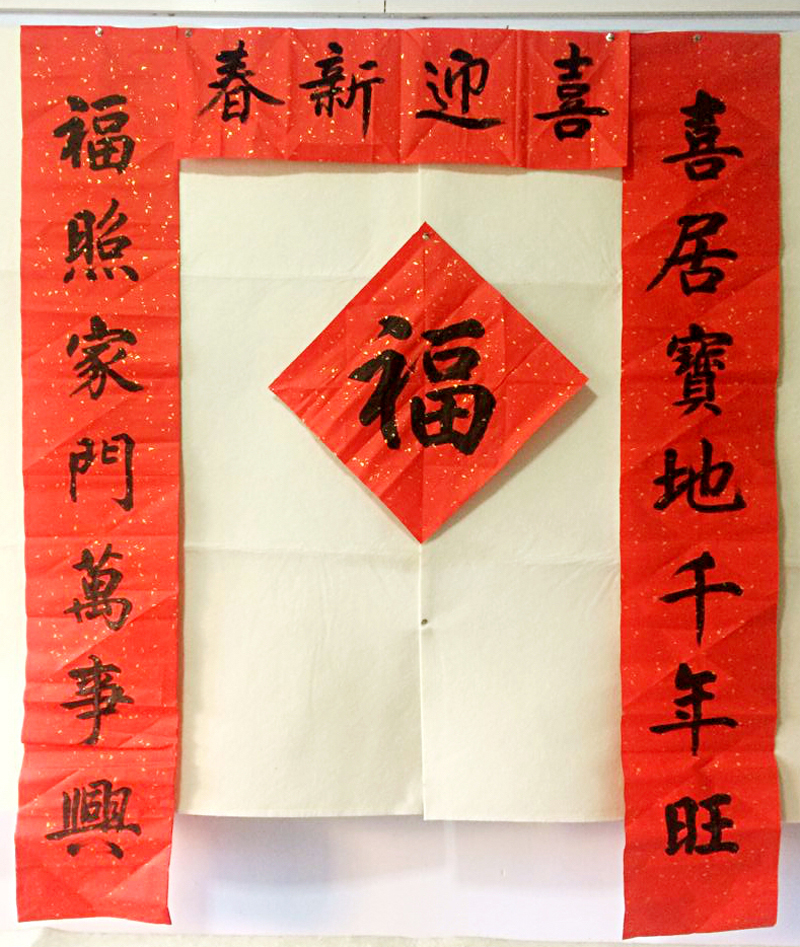 喜迎新春
喜居寶地千年旺
福照家門萬事興
福